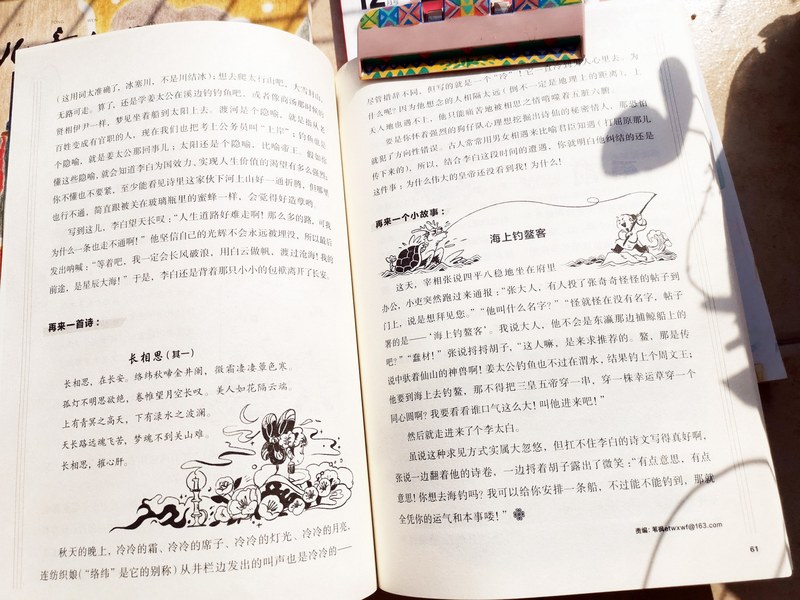 （这用词太准确了，冰塞川，不是川结冰）；想去爬太行山吧，大雪封山，
无路可走。算了，还是学姜太公在溪边钓钓鱼吧，或者像商汤那时候的
贤相伊尹一样，梦见坐着船到太阳上去。渡河是个隐喻，就是指从老
百姓变成有官职的人，现在我们也把考上公务员叫“上岸”；钓鱼也是
个隐喻，就是姜太公那回事儿；太阳还是个隐喻，比喻帝王。假如你
懂这些隐喻，就会知道李白为国效力、实现人生价值的渴望有多么强烈；
你不懂也不要紧，至少能看见诗里这家伙下河上山好一通折腾，但哪里
也行不通，简直跟被关在玻璃瓶里的蜜蜂一样，会觉得好造孽哟。
写到这儿，李白望天长叹：“人生道路好难走啊！那么多的路，可我
为什么一条也走不通啊！”他坚信自己的光辉不会永远被埋没，所以最后
发出呐喊：“等着吧，我一定会长风破浪，用白云做帆，渡过沧海！我的
前途，是星辰大海！”于是，李白还是背着那只小小的包袱离开了长安。
再来一首诗：
长相思（其一）
长相思，在长安。络纬秋啼金井阑，微霜凄凄簟色寒。
孤灯不明思欲绝，卷帷望月空长叹。美人如花隔云端。
上有青冥之高天，下有渌水之波澜。
天长路远魂飞苦，梦魂不到关山难。
长相思，摧心肝。
秋天的晚上，冷冷的霜、冷冷的席子、冷冷的灯光、冷冷的月亮，
连纺织娘（“络纬”是它的别称）从井栏边发出的叫声也是冷冷的——
尽管措辞不同，但写的就是一个“冷”！它一直冷到诗人心里去。为
什么呢？因为他想念的人相隔太远（倒不一定是地理上的距离），上
天入地也遇不上，他只能痛苦地被相思之情啃噬着五脏六腑。
要是你怀着强烈的狗仔队心理想挖掘出诗仙的秘密情人，那恐怕
就犯了方向性错误。古人常常用男女相遇来比喻君臣知遇（打屈原那儿
传下来的），所以，结合李白这段时间的遭遇，你就明白他纠结的还是
这件事：为什么伟大的皇帝还没看到我！为什么！
再来一个小故事：
海上钓鳌客
这天，宰相张说四平八稳地坐在府里
办公，小吏突然跑过来通报：“张大人，有人投了张奇奇怪怪的帖子到
门上，说是想拜见您。”“他叫什么名字？”“怪就怪在没有名字，帖子
署的是——‘海上钓鳌客’。我说大人，他不会是东瀛那边捕鲸船上的
吧？”“蠢材！”张说捋捋胡子，“这人嘛，是来求推荐的。鳌，那是传
说中驮着仙山的神兽啊！姜太公钓鱼也不过在渭水，结果钓上个周文王；
他要到海上去钓鳌，那不得把三皇五帝穿一串，穿一株幸运草穿一个
同心圆啊？我要看看谁口气这么大！叫他进来吧！”
然后就走进来了个李太白。
虽说这种求见方式实属大忽悠，但扛不住李白的诗文写得真好啊，
张说一边翻着他的诗卷，一边捋着胡子露出了微笑：“有点意思，有点
意思！你想去海钓吗？我可以给你安排一条船，不过能不能钓到，那就
全凭你的运气和本事喽！”
责编：笔 etwxwf@163.com
61